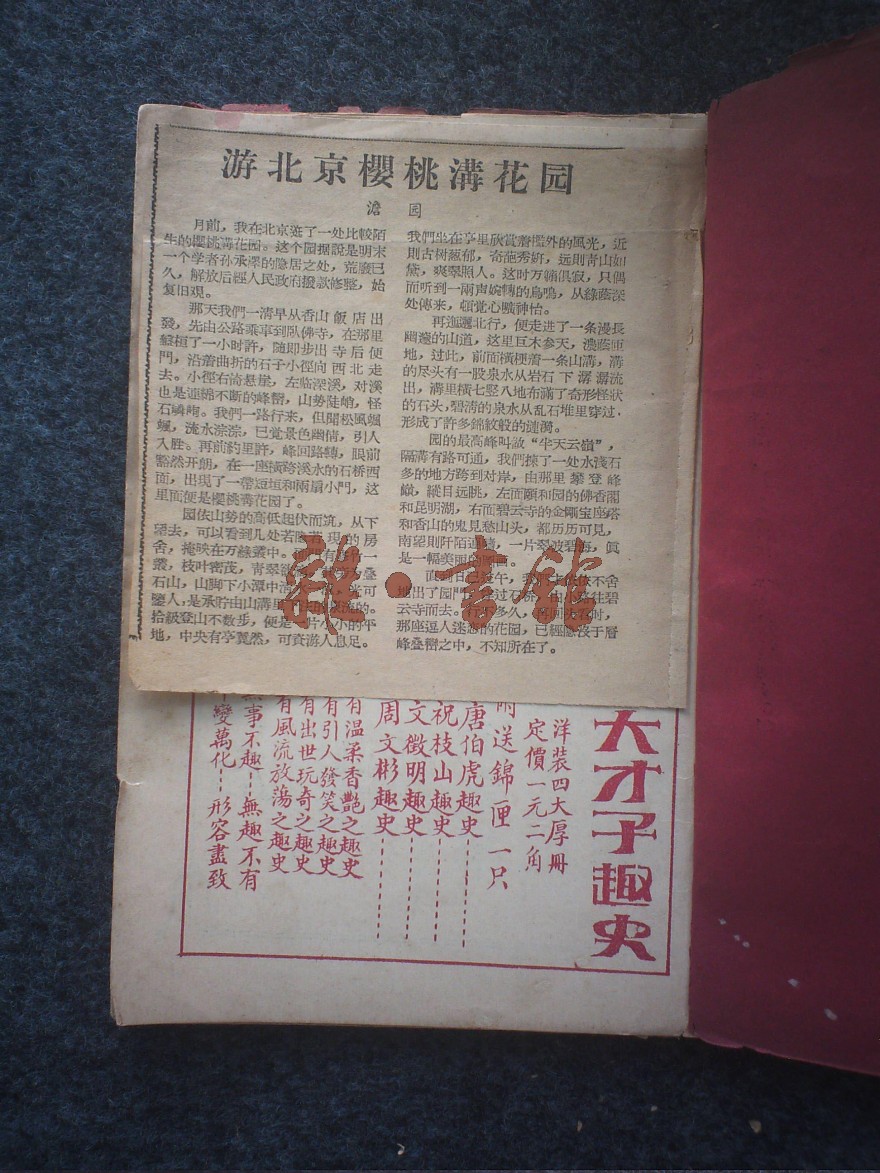 游北京櫻桃溝花园
澹园
月前，我在北京逛了一处比較陌
生的櫻桃溝花園。这个园据說是明末
一个学者孙承泽的隐居之处，荒废已
久，解放后經人民政府撥款修整，始
复旧观。
那天我們一清早从香山飯店出
發，先由公路乘車到臥佛寺，在那里
盤桓了一小时許，随即步出寺后便
門，沿着曲折的石子小徑向西北走
去。小徑右倚悬崖，左临深溪，对溪
也是連綿不断的峰巒，山势陡峭，怪
石嶙峋。我們一路行来，但聞松風颯
颯，流水淙淙，已觉景色幽倩，引人
入胜。再前約里許，峰回路轉，眼前
豁然开朗，在一座横跨溪水的石桥西
面，出現了一帶短垣和兩扇小門，这
里面便是櫻桃溝花园了。
园依山势的高低起伏而筑，从下
望去，可以看到几处若隐 現的房
舍，掩映在万綠叢中。 有 竹一
叢，枝叶密茂，青翠 叠
石山，山脚下小潭中 可
鑒人，是承貯由山溝里
拾級登山不数步，便是 片小小的平
地，中央有亭翼然，可資游人息足。
我們坐在亭里欣赏着檻外的風光，近
則古树葱郁，奇葩秀妍，远則青山如
黛，爽翠照人。这时万籁俱寂，只偶
而听到一兩声婉轉的鳥鳴，从綠蔭深
处傳来，頓觉心曠神怡。
再迤邐北行，便走进了一条漫長
幽邃的山道，这里巨木参天，濃蔭匝
地，过此，前面横梗着一条山溝，溝
的尽头有一股泉水从岩石下潺潺流
出，溝里横七竪八地布滿了奇形怪狀
的石头，碧清的泉水从乱石堆里穿过，
形成了許多錦紋般的漣漪。
园的最高峰叫做“半天云嶺”，
隔溝有路可通，我們揀了一处水淺石
多的地方跨到对岸，由那里攀登峰
巔，縱目远眺，左面頤和园的佛香閣
和昆明湖，右面碧云寺的金剛宝座塔
和香山的鬼見愁山头，都历历可見，
南望則阡陌 ，一片翠波碧海，眞
是一幅美丽的 画。
面 日已 午，我 依依不舍
地出了园門， 过石 往碧
云寺而去。行 多久， 回 时，
那座逗人迷恋的花园，已經隱沒于層
峰叠巒之中，不知所在了。
雜·書館
大才子趣史
洋装四大厚冊
定價一元二角
附送錦匣一只
唐伯虎趣史
祝枝山趣史
文徵明趣史
周文彬趣史
有温柔香艷之趣史
有引人發笑之趣史
有出世玩奇之趣史
有風流放蕩之趣史
無事不趣 無趣不有
變萬化 形容盡致